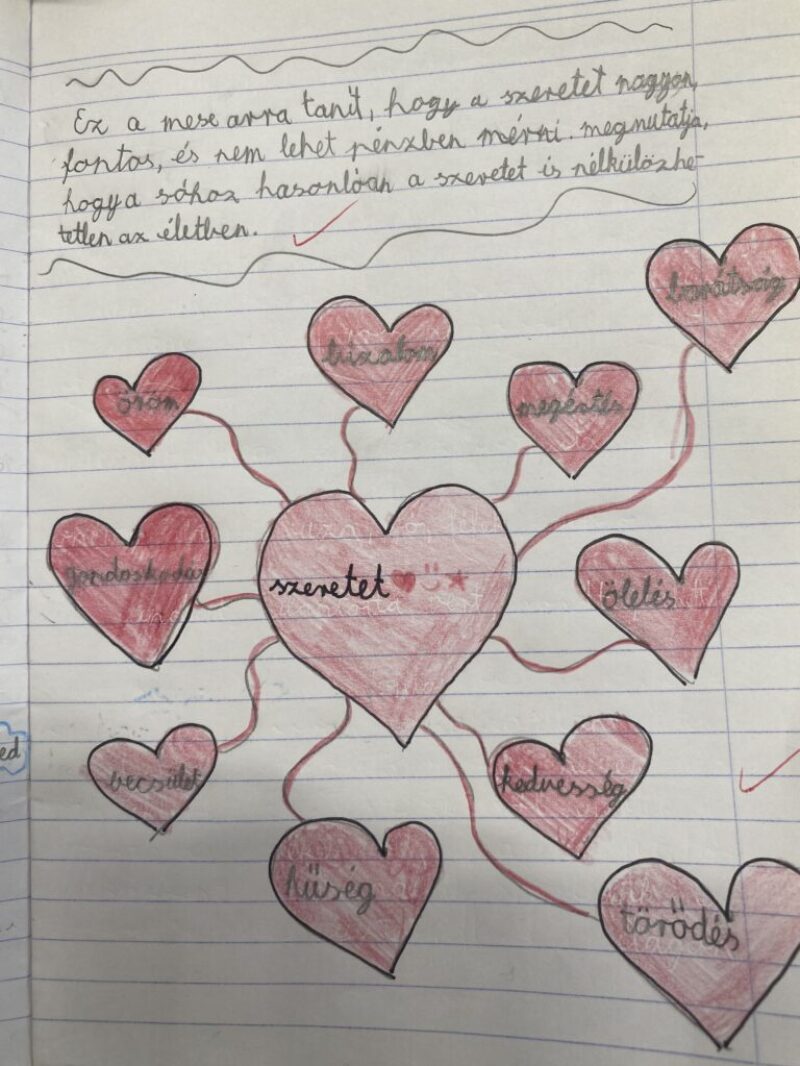 Ez a mese arra tanít, hogy a szeretet nagyon
fontos, és nem lehet pénzben mérni. megmutatja,
hogy a sóhoz hasonlóan a szeretet is nélkülözhe-
tetlen az életben.
barátság
bizalom
öröm
megértés
gondoskodás
szeretet
ölelés
becsület
kedvesség
hűség
törődés
ed